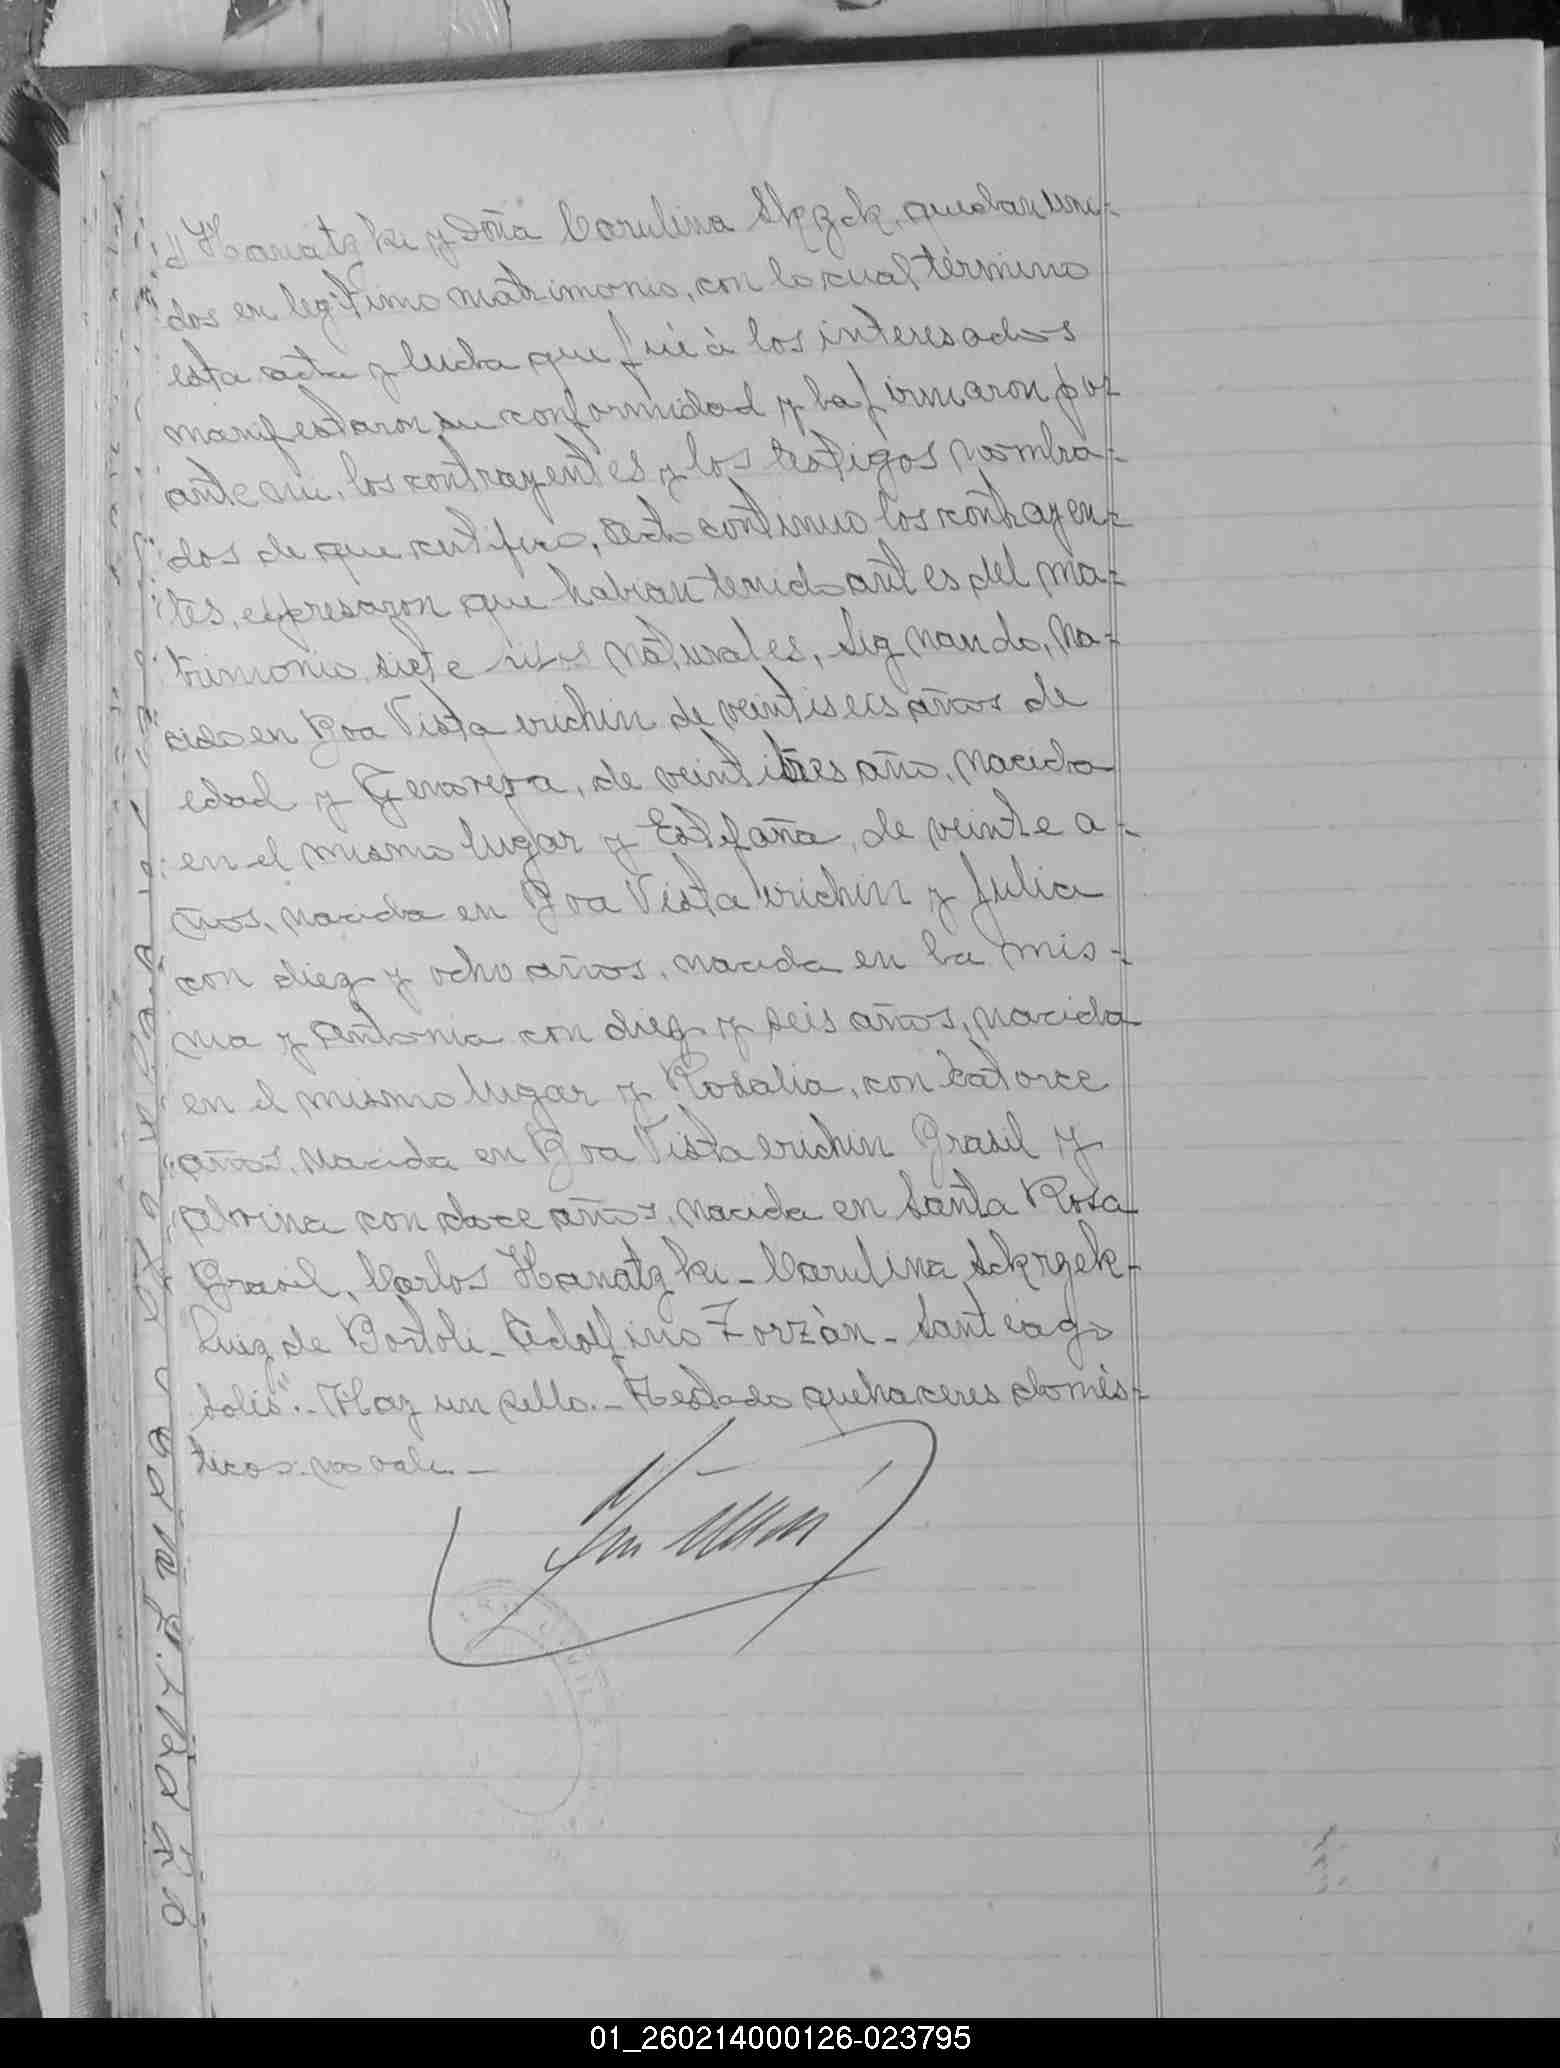 Hanatzki y doña Carulina Skrzek, quedan uni-
dos en legítimo matrimonio, con lo cual término
esta acta y leida que fué à los interesados
manifestaron su conformidad y la firmaron por
ante mi, los contrayentes y los testigos nombra-
dos de que certifico, Acto continuo los contrayen-
tes, expresaron que habian tenido antes del ma-
trimonio, siete hijos naturales, Signando, na-
cido en Boa Vista erichin de veintiseis años de
edad y Genoveva, de veintitres año, nacida
en el mismo lugar y Estefaña, de veinte a-
ños, nacida en Boa Vista erichin y Julia
con diez y ocho años, nacida en la mis-
ma y Antonia con diez y seis años, nacida
en el mismo lugar y Rosalia, con catorce
años, nacida en Boa Vista erichin Brasil y
con doce años, nacida en Santa Rosa
Brasil, Carlos Hanatzki - Carulina Sckrzek -
Luiz de Bortoli - Adolfino Forzàn - Santiago
Solis".- Hay un sello.- Testado quehaceres domès-
ticos: no vale.-
01_260214000126-023795